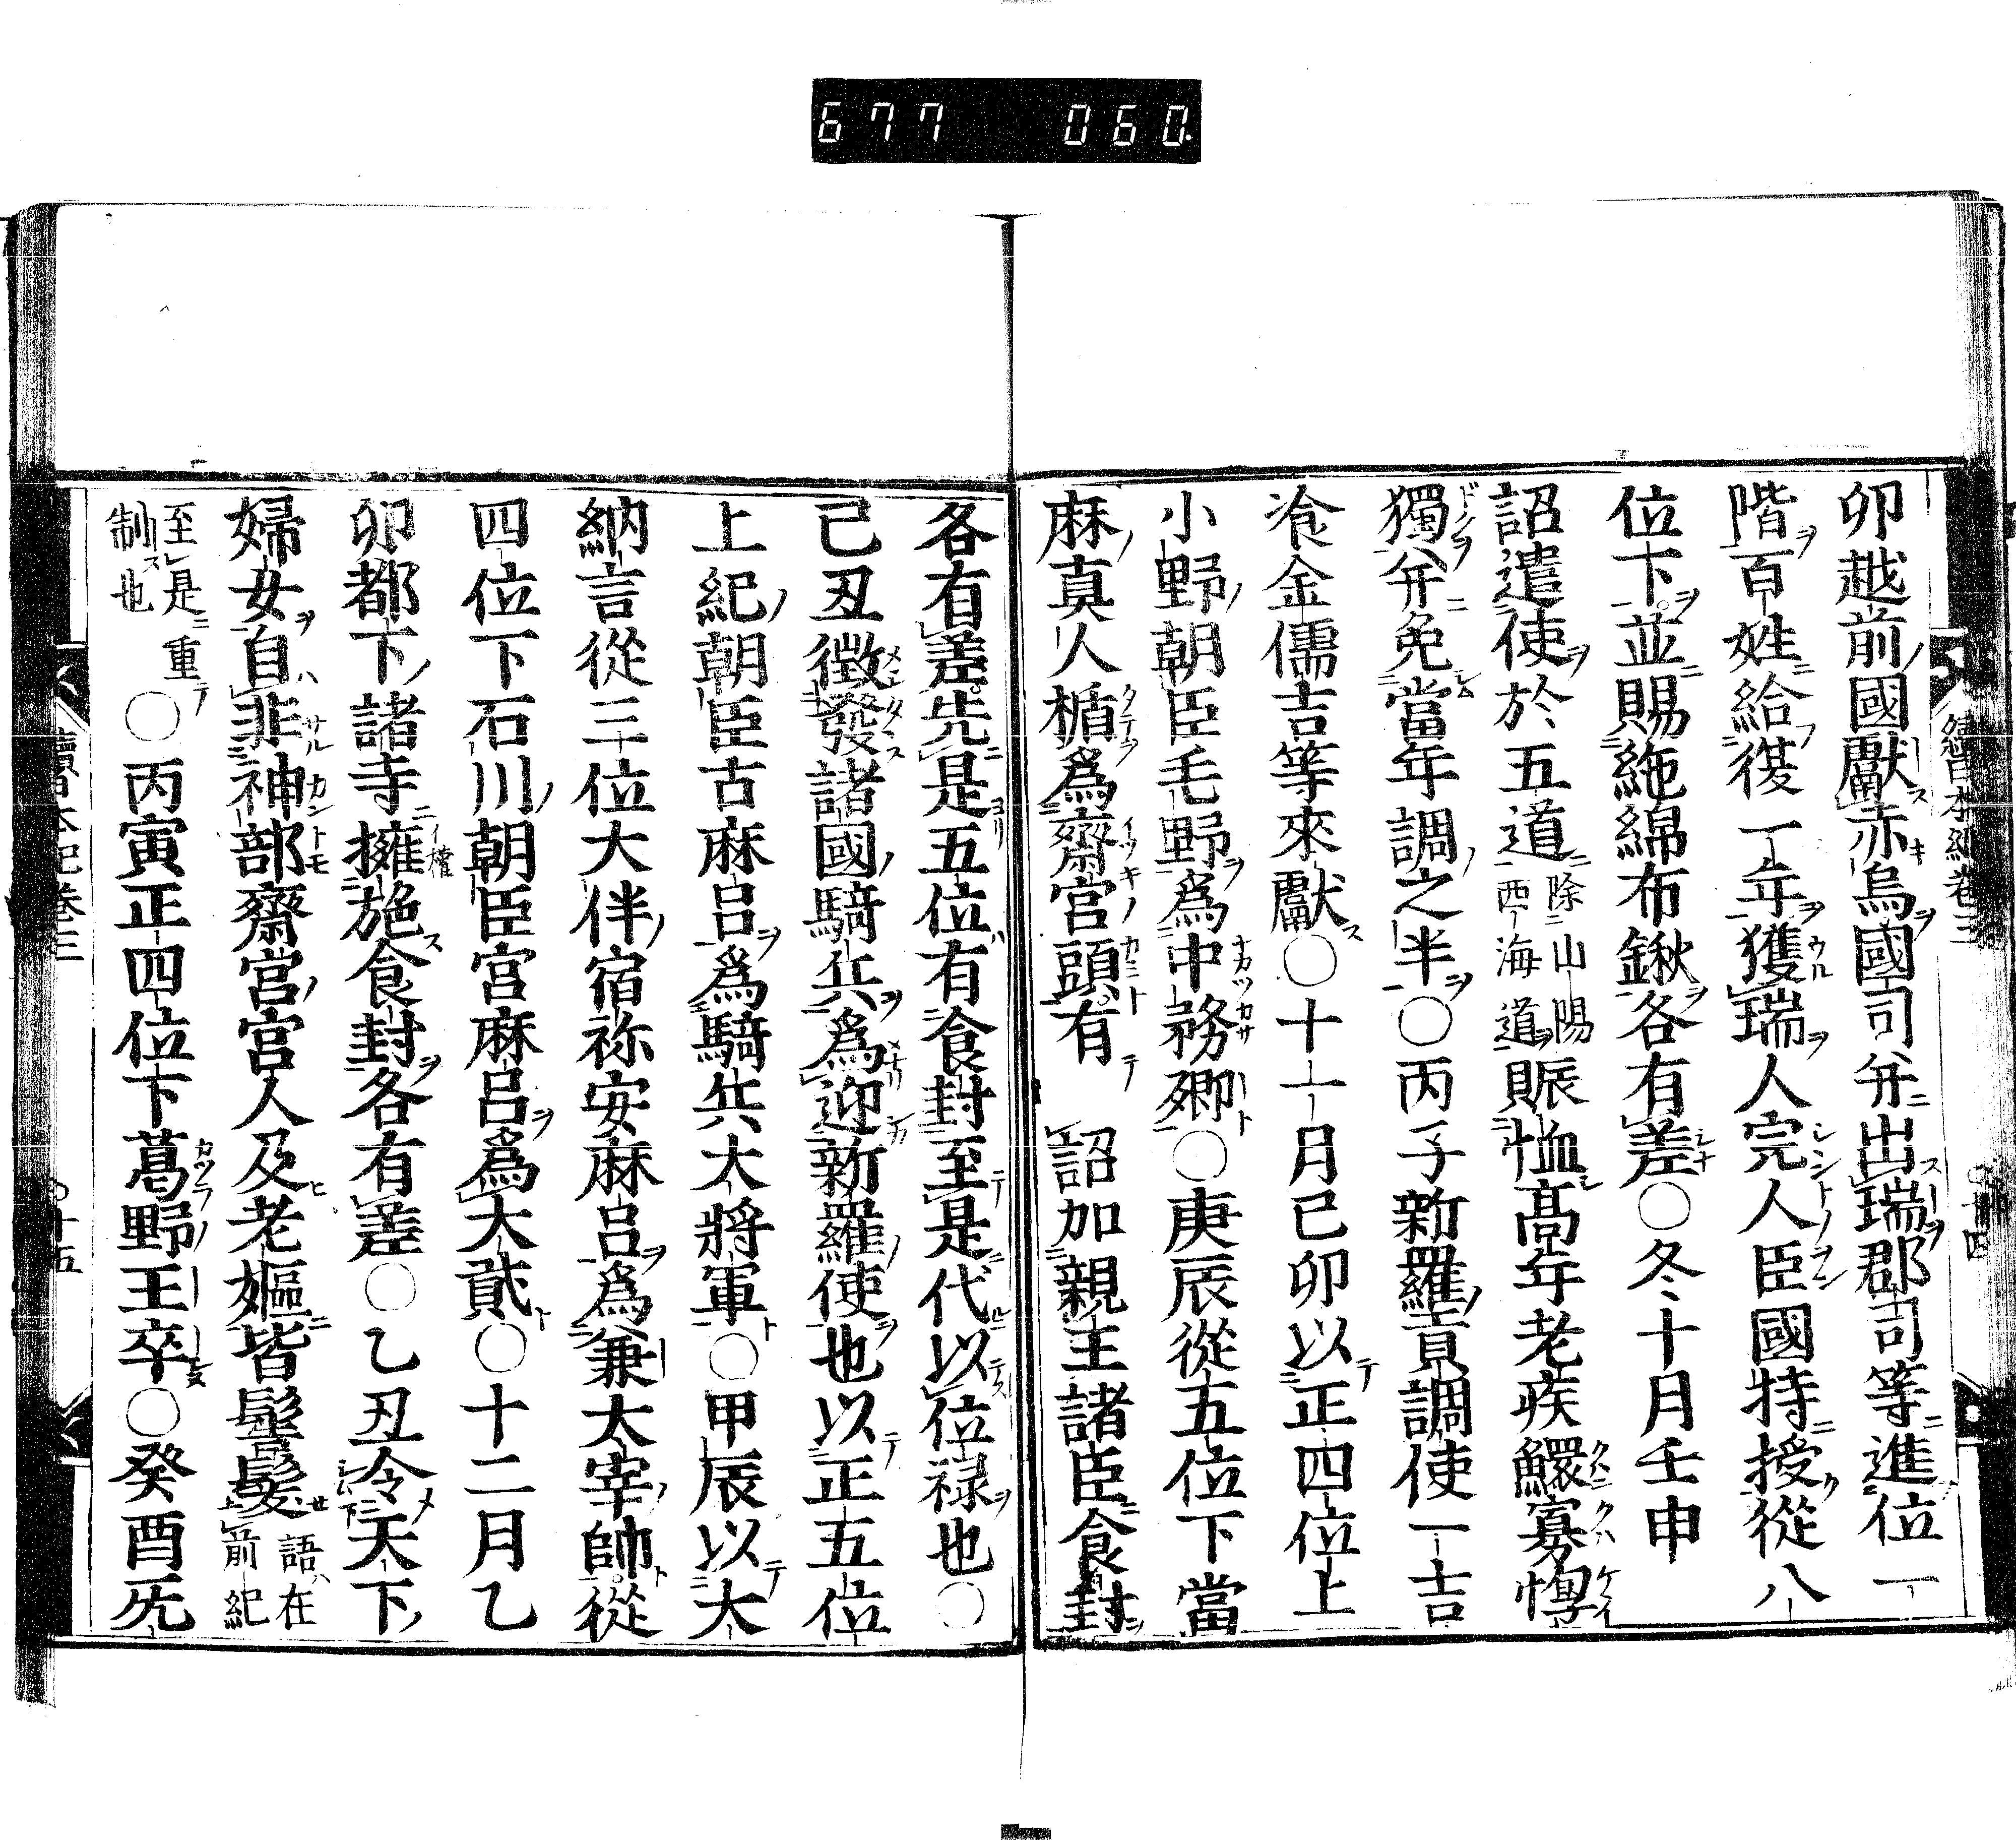 677 060
卯越前國獻赤烏國司并出瑞郡司等進位一
階百姓給復一年獲瑞人宍人臣國特授從八
位下並賜絁綿布鍬各有差○冬十月壬申
詔遣使於五道除山陽西海道賑恤髙年老疾鰥寡惸
獨并免當年調之半○丙子新羅貢調使一吉
飡金儒吉等來獻○十一月己卯以正四位上
小野朝臣毛野爲中務卿○庚辰從五位下當
麻真人楯爲齋宮頭有　詔加親王諸臣食封
各有差先是五位有食封至是代以位禄也○
己丑徵發諸國騎兵爲迎新羅使也以正五位
上紀朝臣古麻呂爲騎兵大將軍○甲辰以大
納言從三位大伴宿祢安麻呂爲兼大宰帥從
四位下石川朝臣宮麻呂爲大貳○十二月乙
卯都下諸寺擁施食封各有差○乙丑令天下
婦女自非神部齋宮宮人及老嫗皆髻髮語在前紀
至是重制也○丙寅正四位下葛野王卒○癸酉旡
續日本紀卷三